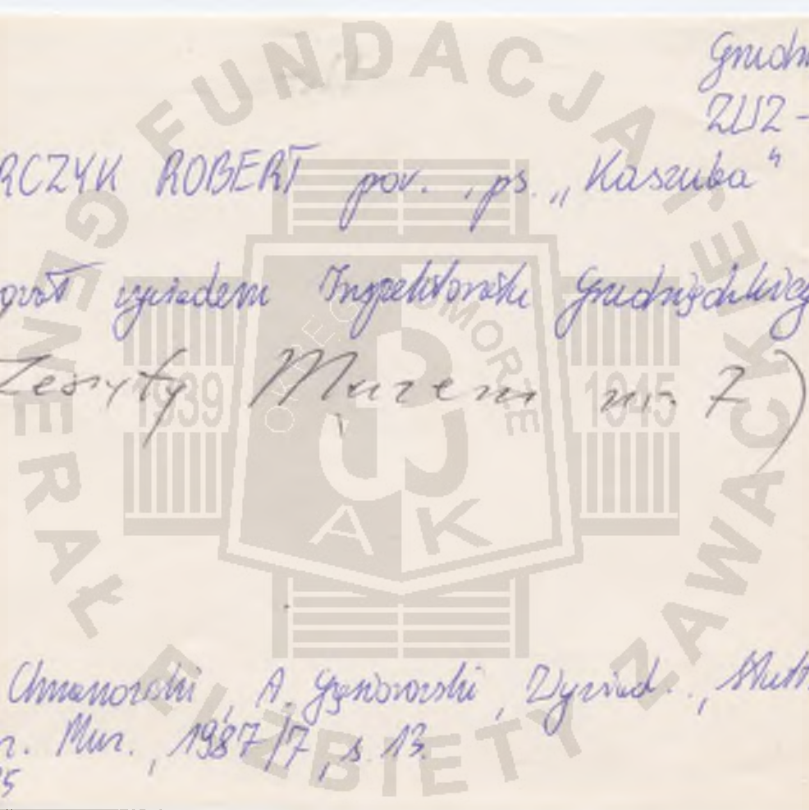 Grudzi
ZWZ -
RCZYK ROBERT por., ps. „Kaszuba"
wywiadem Inspektoratu Grudziądzkiego
Zeszyty Muzeum nr. 7)
Chmanorski, A. Gąsiorowski, Wywiad.., Stutt
r. Muz., 1987/7, s. 13.
FUNDACJA
GENERAŁ ELŻBIETY ZAWACKIEJ
OKRĘG POMORZE
1939
1945
AK